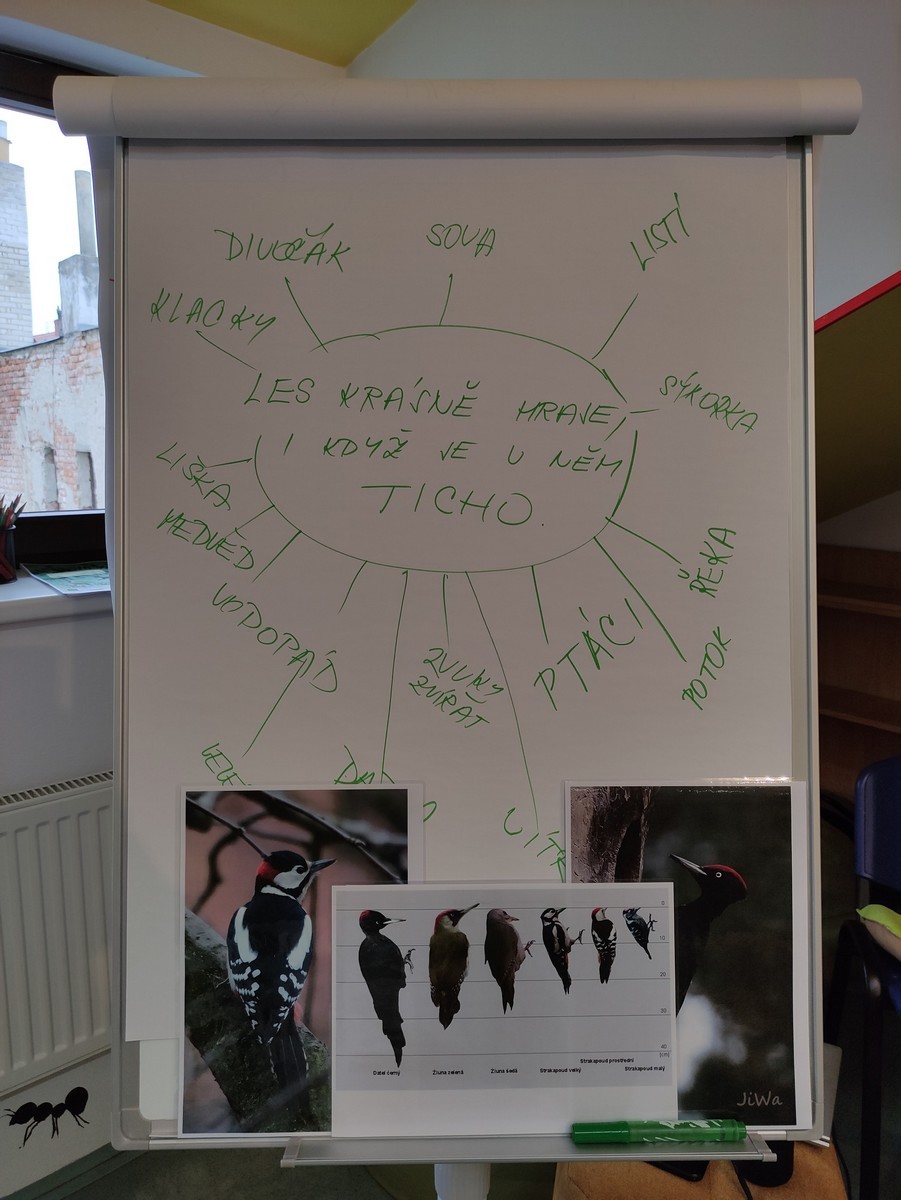 DIVOČÁK
SOVA
LISTÍ
KLACKY
SÝKORKA
LES KRÁSNĚ HRAJE,
I KDYŽ JE U NĚM
TICHO.
LIŠKA
MEDVĚD
VODOPÁD
ZVUKY
ZVÍŘAT
PTÁCI
ŘEKA
POTOK
0
10
20
30
40
[cm]
Datel černý
Žluna zelená
Žluna šedá
Strakapoud velký
Strakapoud prostřední
Strakapoud malý
JiWa